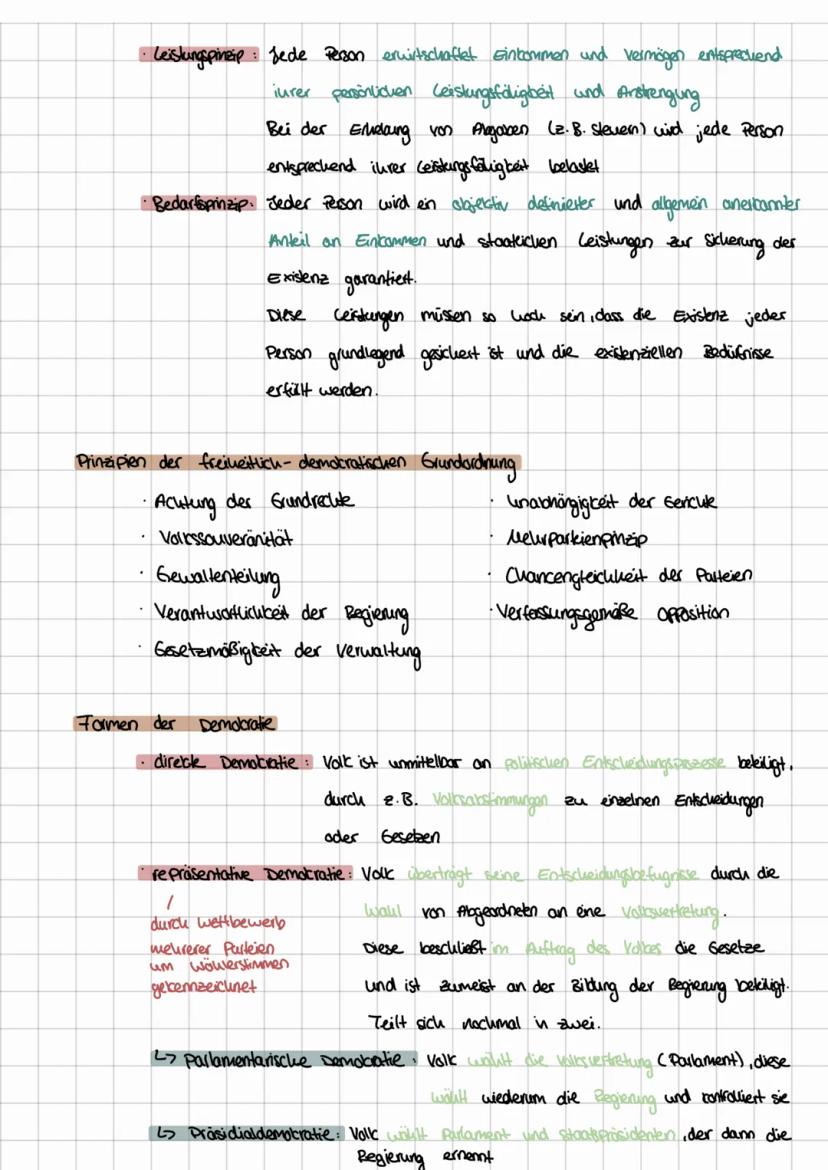 · Leistungsprinzip: Jede Person erwirtschaftet Einkommen und Vermögen entsprechend
ihrer persönlichen Leistungsfähigkeit und Anstrengung
Bei der Erhebung von Abgaben (z.B. Steuern) wird jede Person
entsprechend ihrer Leistungsfähigkeit belastet
· Bedarfsprinzip: Jeder Person wird ein objektiv definierter und allgemein anerkannter
Anteil an Einkommen und staatlichen Leistungen zur Sicherung der
Existenz garantiert.
Diese Leistungen müssen so hoch sein, dass die Existenz jeder
Person grundlegend gesichert ist und die existenziellen Bedüfnisse
erfüllt werden.
Prinzipien der freiheitlich-demokratischen Grundordnung
· Achtung der Grundrechte
· Volkssouveränität
· Gewaltenteilung
· Verantwortlichkeit der Regierung
· Gesetzmäßigkeit der Verwaltung
· Unabhängigkeit der Gerichte
· Mehrparteienprinzip
· Chancengleichheit der Parteien
· Verfassungsgemäße Opposition
Formen der Demokratie
· direkte Demokratie: Volk ist unmittelbar an politischen Entscheidungsprozesse beteiligt,
durch z.B. Volksabstimmungen zu einzelnen Entscheidungen
oder Gesetzen
· repräsentative Demokratie: Volk überträgt seine Entscheidungsbefugnisse durch die
Wahl von Abgeordneten an eine Volksvertretung.
Diese beschließt im Auftrag des Volkes die Gesetze
und ist zumeist an der Bildung der Regierung beteiligt.
Teilt sich nochmal in zwei.
durch Wettbewerb
mehrerer Parteien
um Wählerstimmen
gekennzeichnet
↳ Parlamentarische Demokratie: Volk wählt die Volksvertretung (Parlament), diese
wählt wiederum die Regierung und kontrolliert sie
↳ Präsidialdemokratie: Volk wählt Parlament und Staatspräsidenten, der dann die
Regierung ernennt